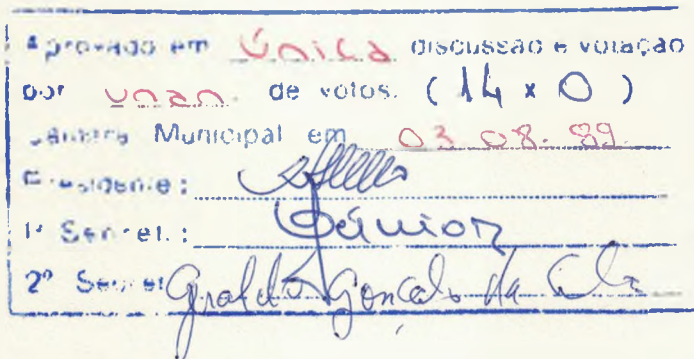 Aprovado em Única discussão e votação
por unan. de votos. (14 x 0)
Câmara Municipal em 03.08.89
Presidente:
1º Secret.: Júnior
2º Secret. Geraldo Gonçalo da